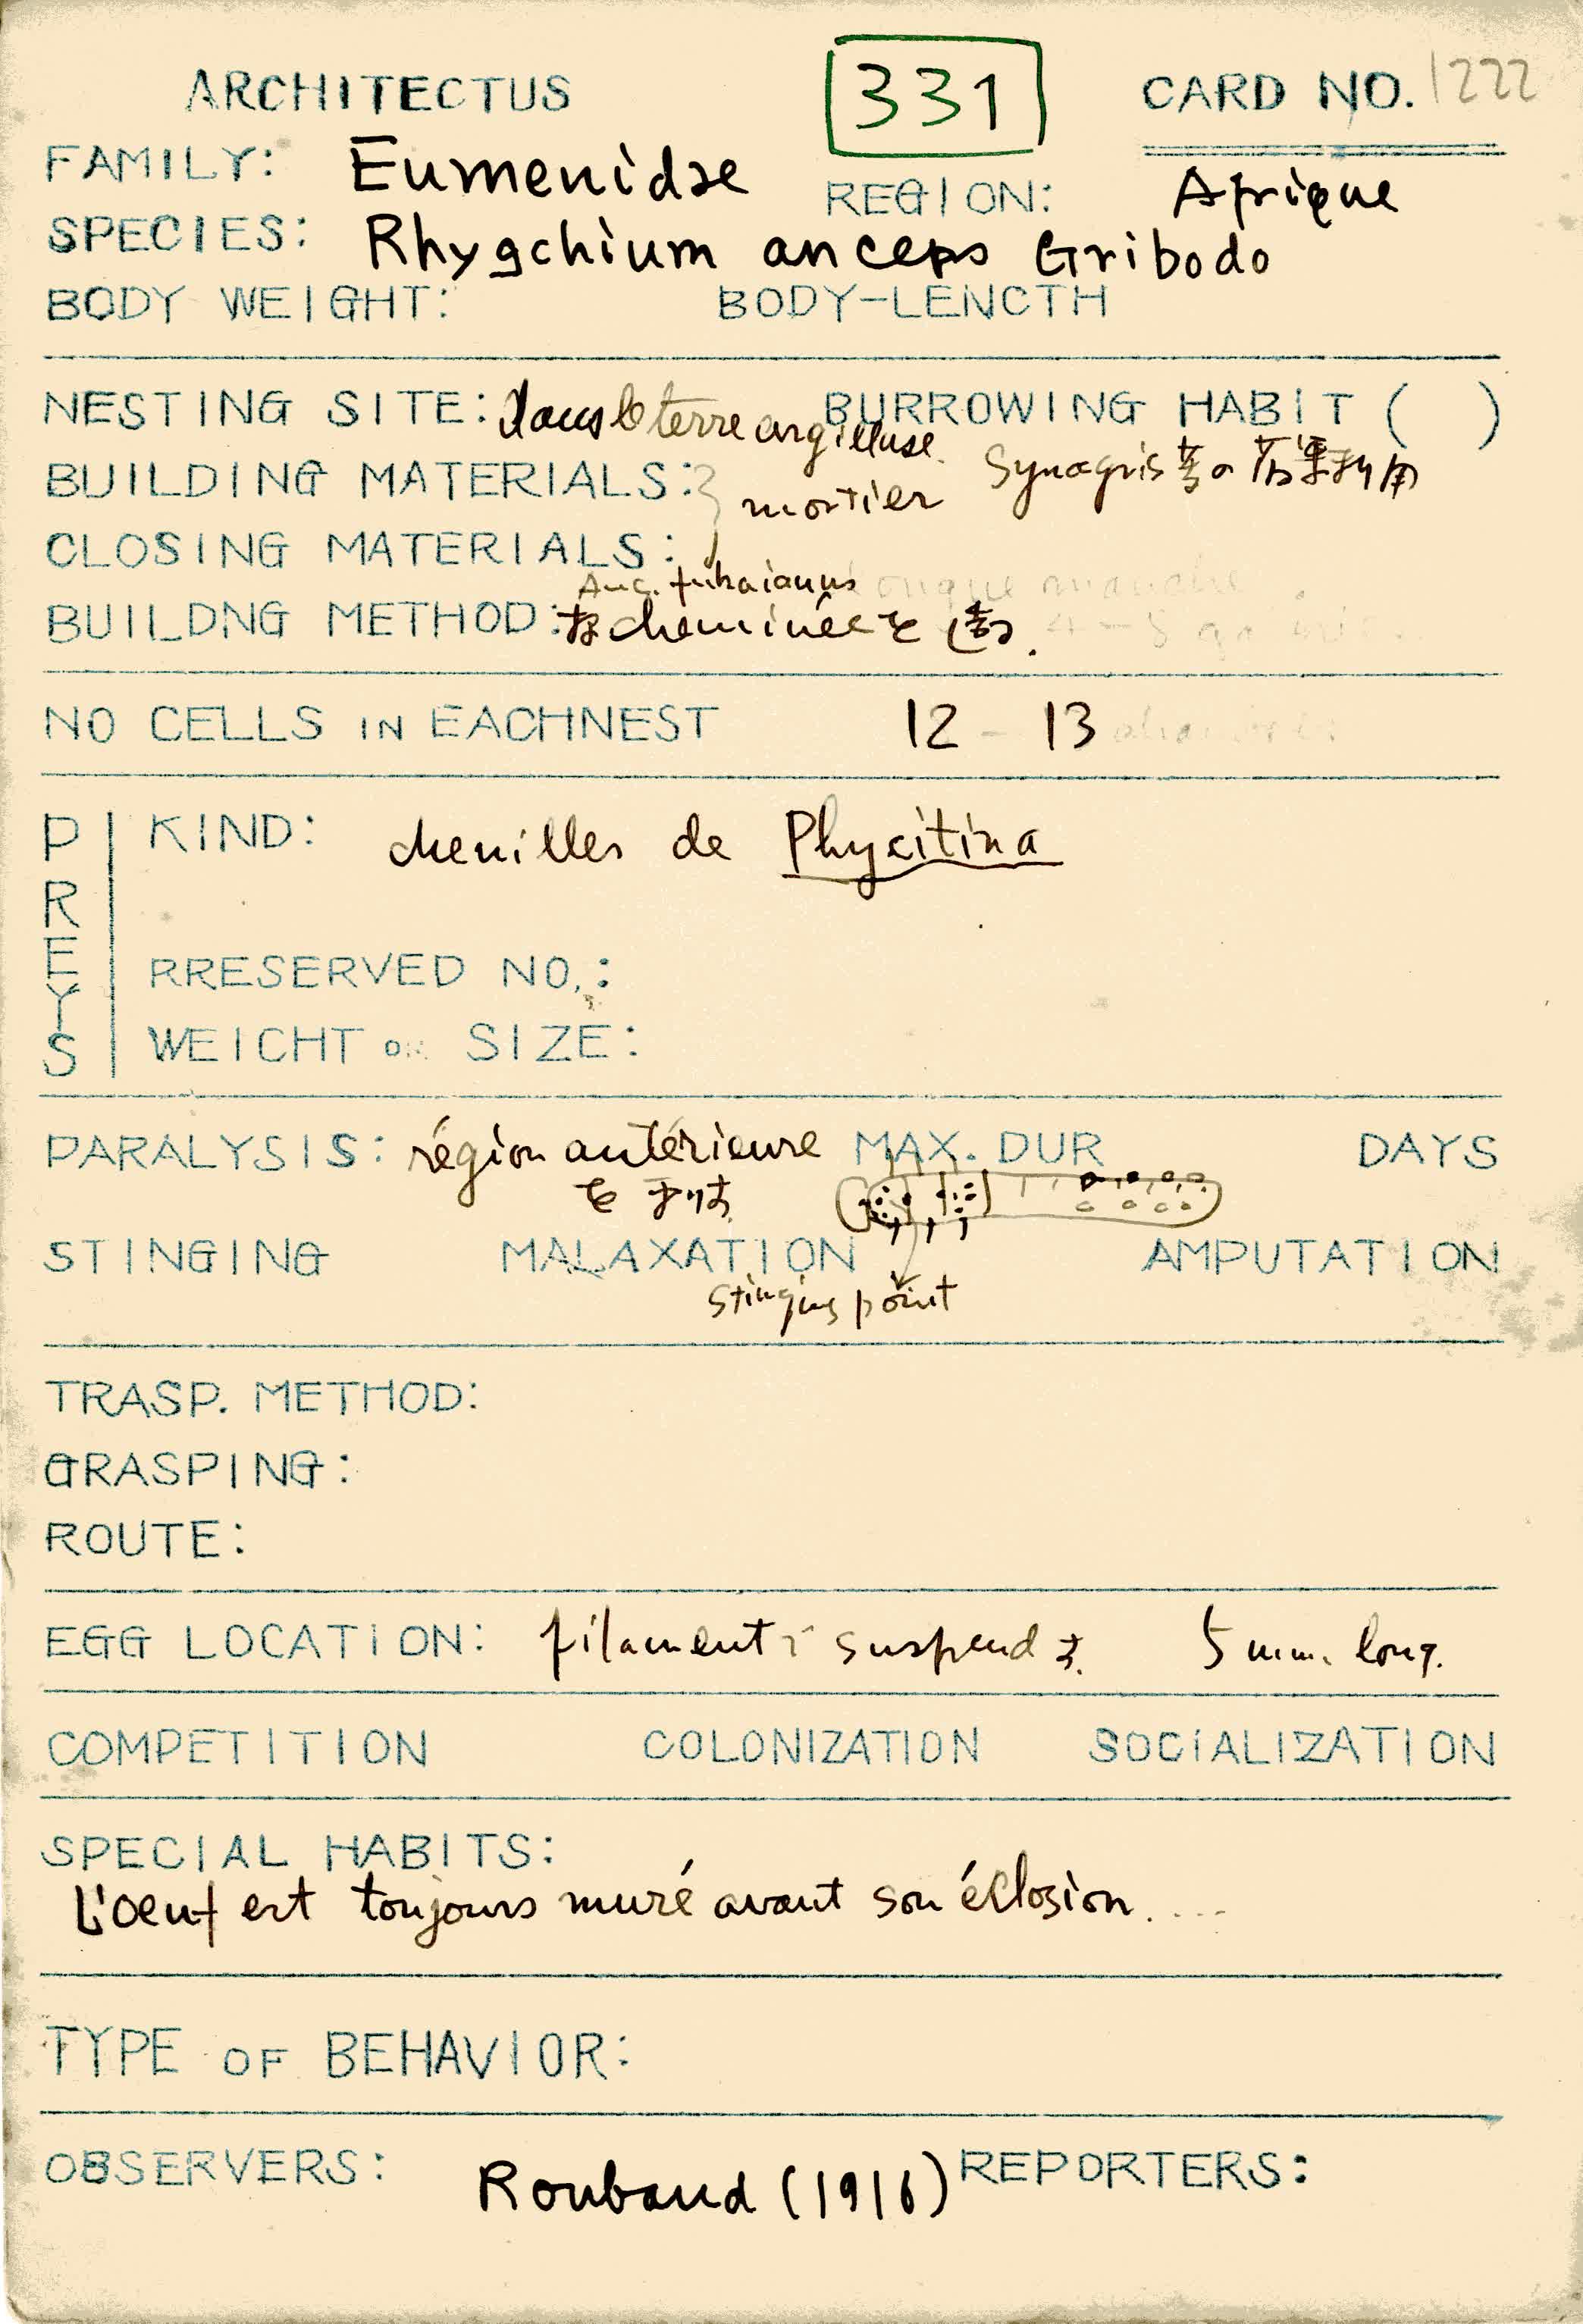 ARCHITECTUS 331 CARD NO. 1222
FAMILY: Eumenidae REGION: Afrique
SPECIES: Rhygchium anceps Gribodo
BODY WEIGHT: BODY-LENGTH
NESTING SITE: dans le terre argileuse. BURROWING HABIT ( )
BUILDING MATERIALS: mortier Synagris 等の古巣利用
CLOSING MATERIALS:
BUILDNG METHOD: cheminéeを造る.
NO CELLS IN EACHNEST 12 - 13
PREYS
KIND: chenilles de Phycitina
RRESERVED NO.:
WEIGHT OR SIZE:
PARALYSIS: région antérieure MAX. DUR DAYS
をオソフ
STINGING MALAXATION AMPUTATION
Stinging point
TRASP. METHOD:
GRASPING:
ROUTE:
EGG LOCATION: filamentデ suspendす. 5 mm. long.
COMPETITION COLONIZATION SOCIALIZATION
SPECIAL HABITS:
L'oeuf est toujours muré avant son éclosion.....
TYPE OF BEHAVIOR:
OBSERVERS: Roubaud (1916) REPORTERS: